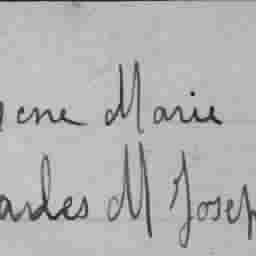 ene Marie
arles M Josep